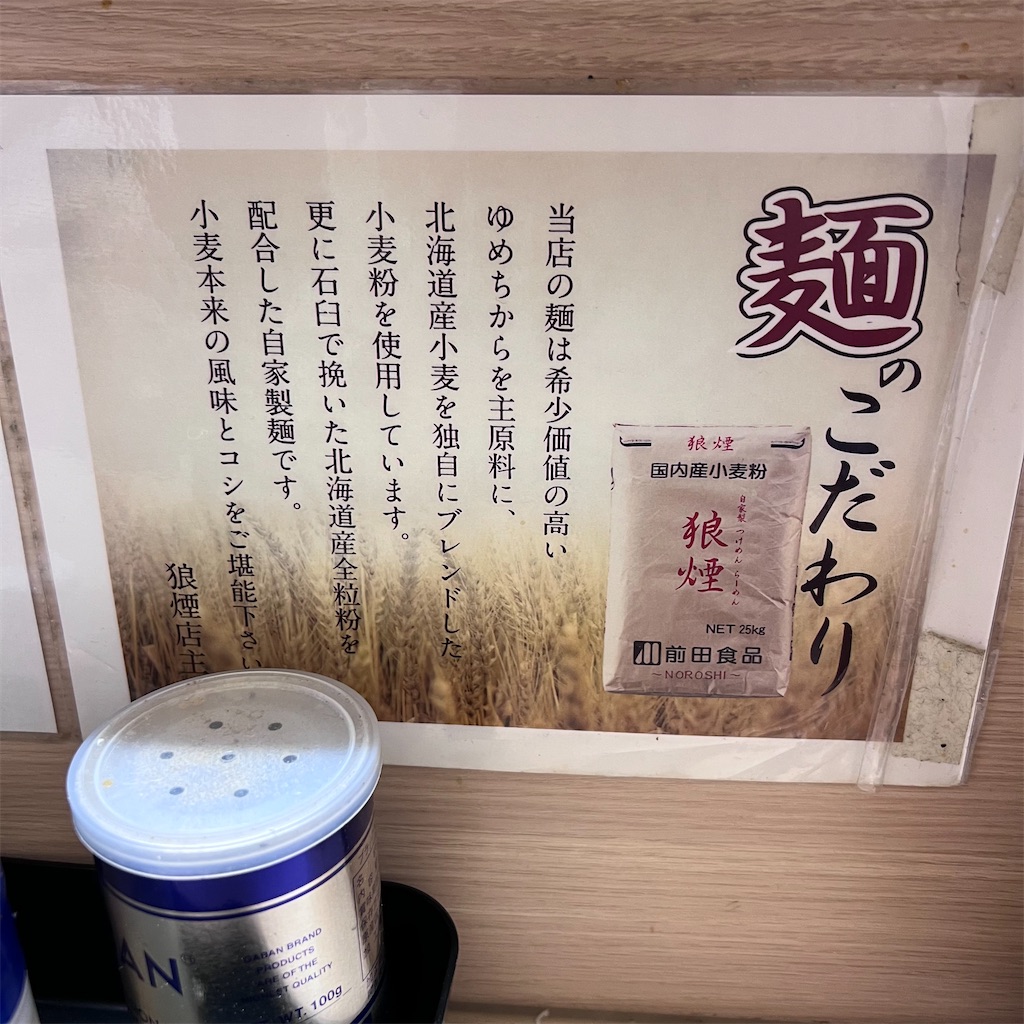 麺のこだわり
当店の麺は希少価値の高い
ゆめちからを主原料に、
北海道産小麦を独自にブレンドした
小麦粉を使用しています。
更に石臼で挽いた北海道産全粒粉を
配合した自家製麺です。
小麦本来の風味とコシをご堪能下さい
狼煙店主
狼煙
国内産小麦粉
自家製 つけめん らーめん
狼煙
NET 25kg
前田食品
~NOROSHI~
AN
GABAN BRAND
PRODUCTS
ARE OF THE
QUALITY
WT. 100g